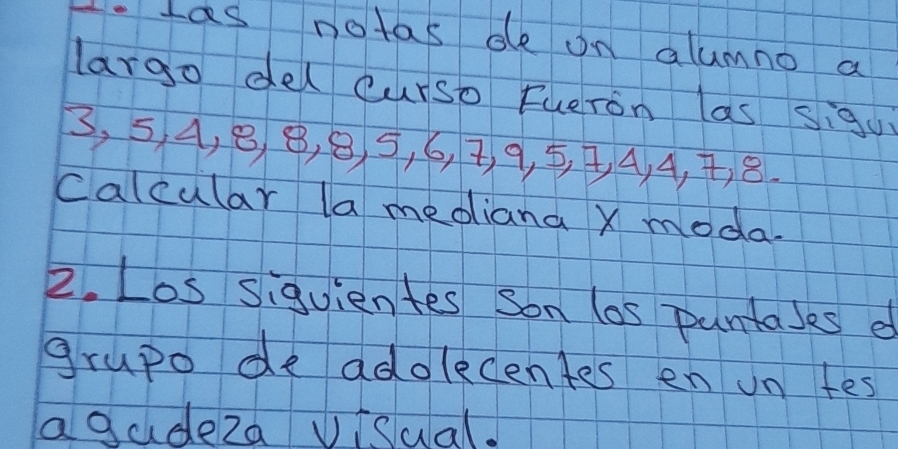 1. Las notas de un alumno a
largo del curso Fuerón las sigui
3, 5, 4, 8, 8, 8, 5, 6, 7, 9, 5, 7, 4, 4, 7, 8.
Calcular la mediana y moda.
2. Los siguientes son los puntajes d
grupo de adolecentes en un tes
agudeza visual.